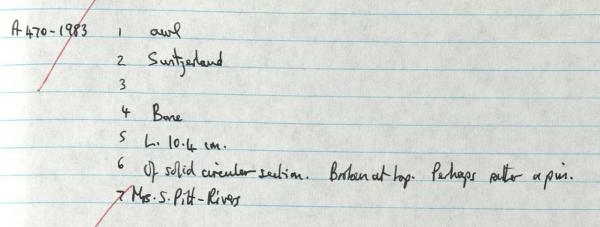 A 470-1983 1 awl
2 Switzerland
3
4 Bone
5 L. 10.4 cm.
6 Of solid circular section. Broken at top. Perhaps rather a pin.
7 Mrs. S. Pitt-Rivers